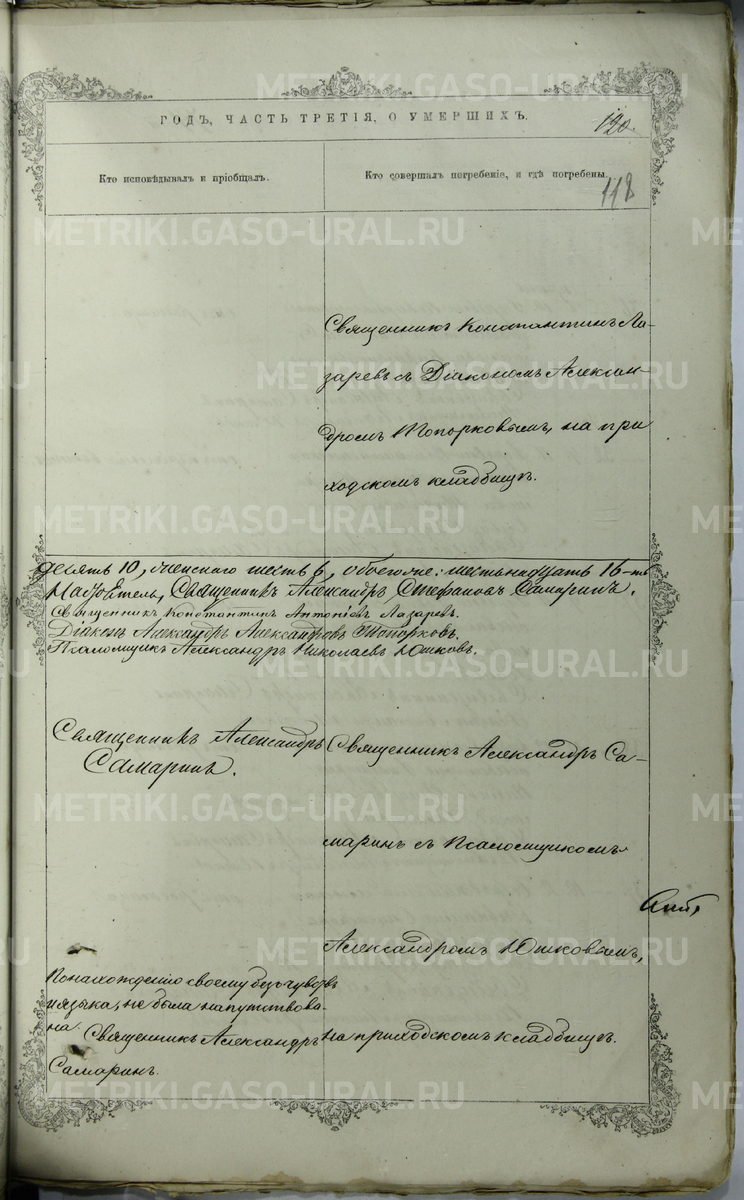 ГОДЪ, ЧАСТЬ ТРЕТІЯ, О УМЕРШИХЪ.
120.
118
Кто исповѣдывалъ и пріобщалъ.
Кто совершалъ погребеніе, и гдѣ погребены.
Священникъ Константинъ Ла-
заревъ съ Діакономъ Алексан-
дромъ Топорковымъ, на при
ходскомъ кладбищѣ.
десять 10, женскаго шесть 6, обоего пола: шестьнадцать 16-ть
Настоятель, Священникъ Александръ Стефановъ Самаринъ.
Священникъ Константинъ Антоніевъ Лазаревъ.
Діаконъ Александръ Александровъ Топорковъ.
Псаломщикъ Александръ Николаевъ Юшковъ.
Священникъ Александръ
Самаринъ.
Священникъ Александръ Са-
маринъ съ Псаломщикомъ
Александромъ Юшковымъ,
на приходскомъ кладбищѣ.
По нахожденію своему безъ чувствъ
и языка, не была напутствова-
на Священникъ Александръ
Самаринъ.
METRIKI.GASO-URAL.RU